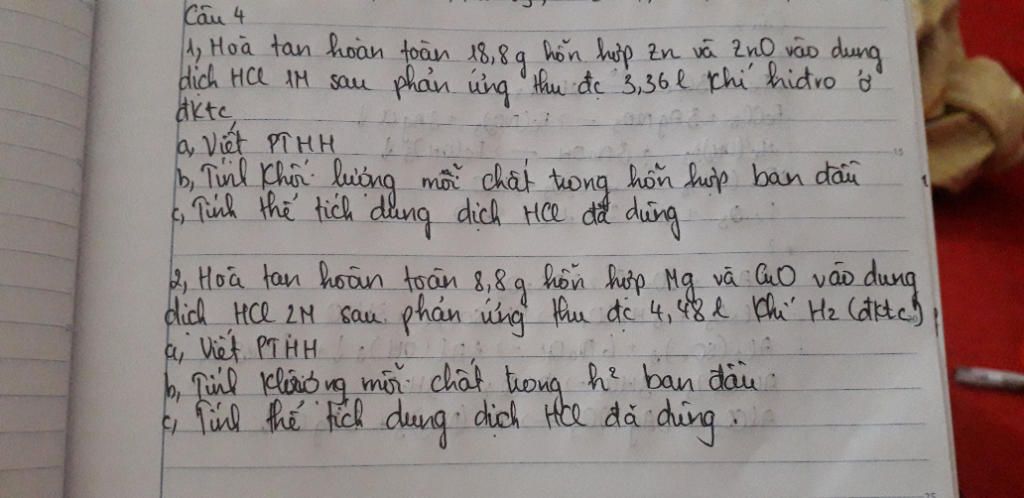 Câu 4
1, Hoà tan hoàn toàn 18,8g hỗn hợp Zn và ZnO vào dung
dịch HCl 1M sau phản ứng thu đc 3,36l khí hiđro ở
đktc
a, Viết PTHH
b, Tính khối lượng mỗi chất trong hỗn hợp ban đầu
c, Tính thể tích dung dịch HCl đã dùng
2, Hoà tan hoàn toàn 8,8g hỗn hợp Mg và CuO vào dung
dịch HCl 2M sau phản ứng thu đc 4,48l khí H2 (đktc)
a, Viết PTHH
b, Tính mỗi chất trong h² ban đầu
c, Tính thể tích dung dịch HCl đã dùng.